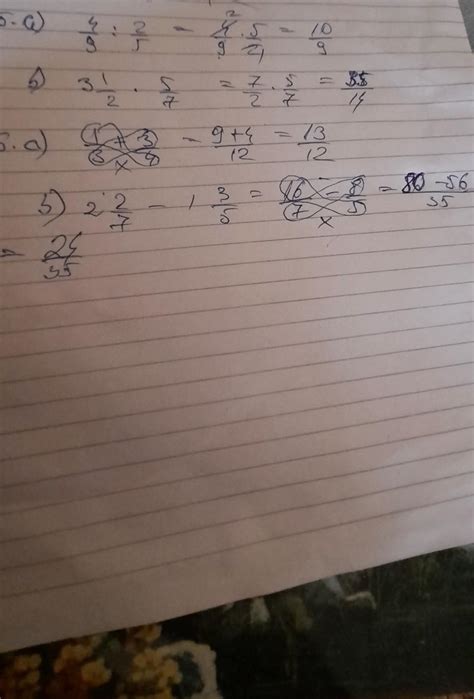 5. a) 4/9 : 2/5 = 4/9 · 5/2 = 10/9
б) 3 1/2 · 5/7 = 7/2 · 5/7 = 35/14
6. a) 1/3 + 3/4 = 9+4/12 = 13/12
б) 2 2/7 - 1 3/5 = 16/7 - 8/5 = 80-56/35
= 24/35